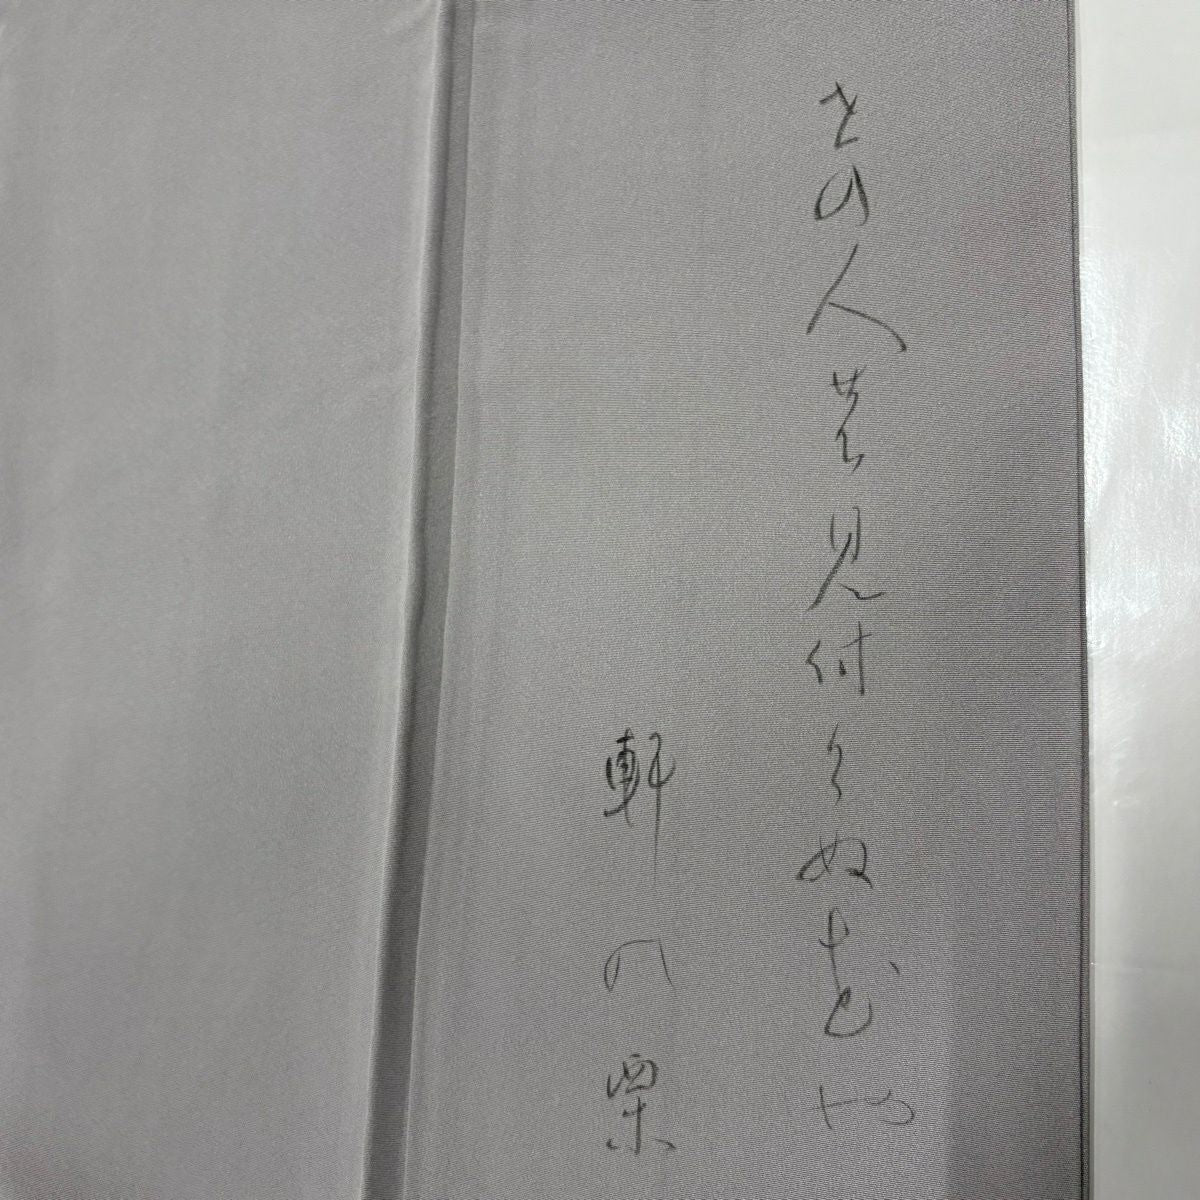 世の人の見付けぬ花や
軒の栗